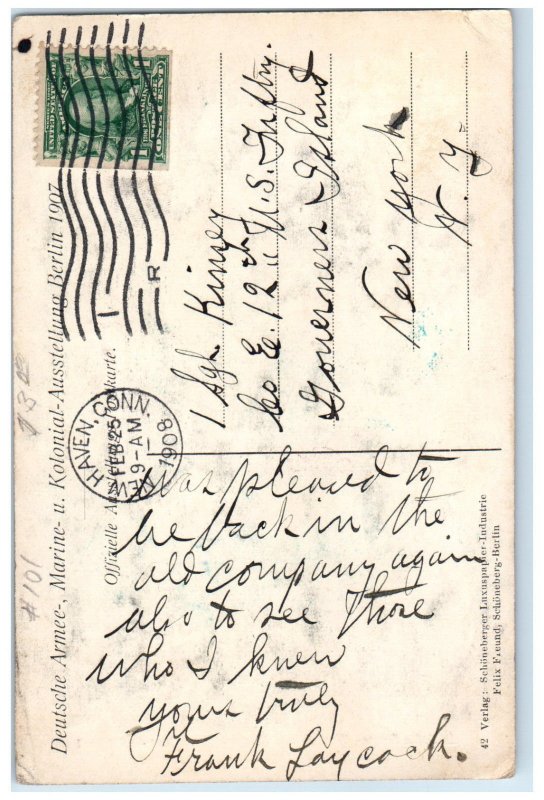 Deutsche Armee-, Marine- u. Kolonial-Ausstellung Berlin 1907
Offizielle Ausstellungs-Postkarte.
NEW HAVEN, CONN.
FEB 25
9-AM
1908
1
R
1 Sgt. Kinney
Co E. 12th U.S. Inftry.
Governers Island
New York
N. Y.
Was pleased to
be back in the
old company again
also to see those
who I knew
yours truly
Frank Laycock.
42 Verlag: Schöneberger Luxuspapier-Industrie
Felix Freund, Schöneberg-Berlin
#101